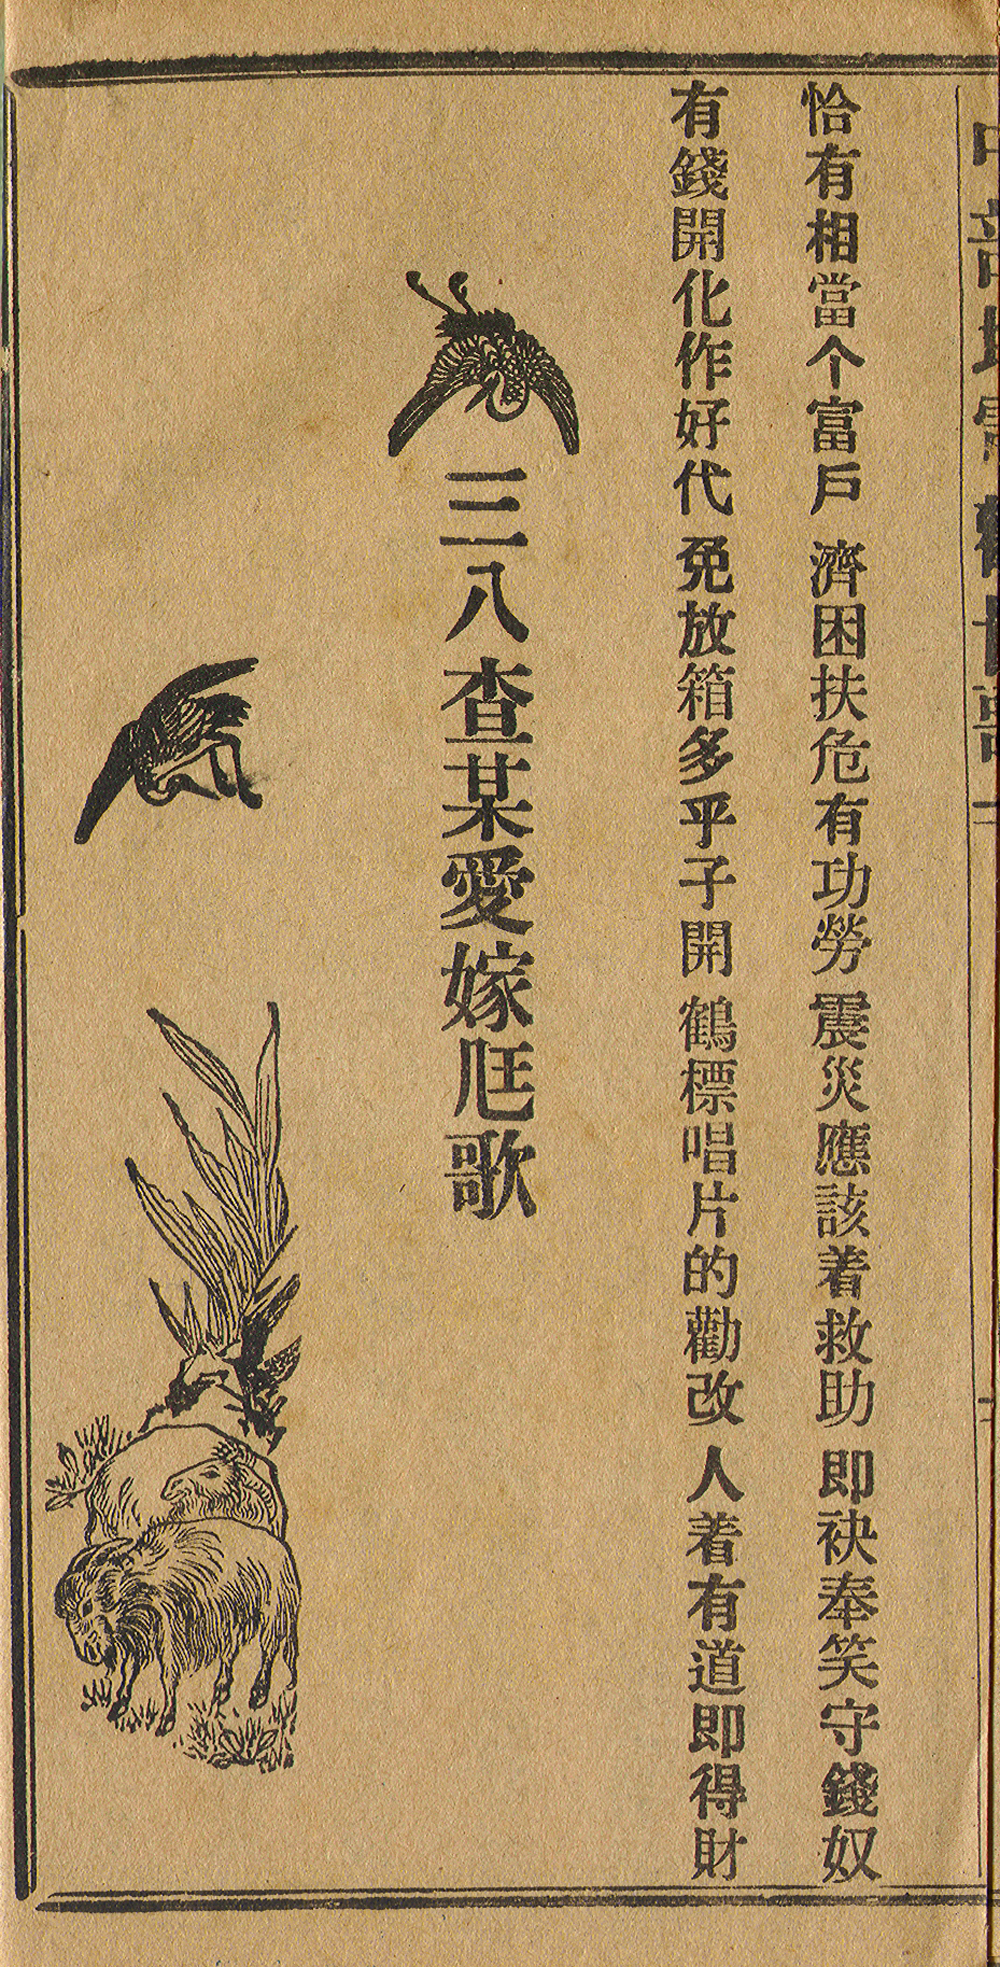 恰有相當个富戶 濟困扶危有功勞 震災應該着救助 即袂奉笑守錢奴
有錢開化作好代 免放箱多乎子開 鶴標唱片的勸改 人着有道即得財
三八查某愛嫁尫歌